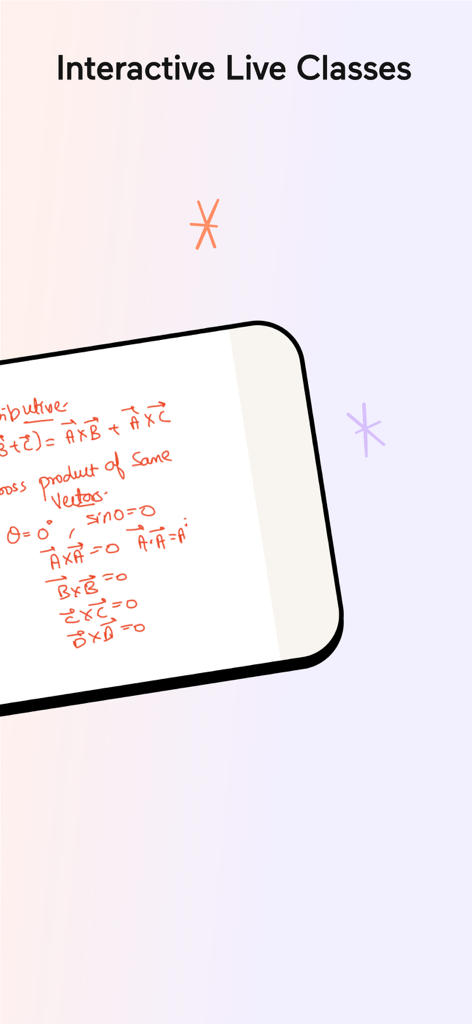 Interactive Live Classes
ributive
B⃗+C⃗)= A⃗×B⃗ + A⃗×C⃗
oss product of Same
Vectors.
θ=0° , sin0=0
A⃗×A⃗=0 A⃗·A⃗=A²
B⃗×B⃗=0
C⃗×C⃗=0
D⃗×D⃗=0